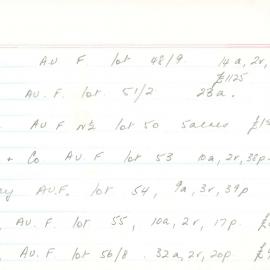 AU F. lot 48/9. 14a, 2r,
£1125
AU. F. lot 51/2 23a.
AU F N½ lot 50 5acres £1
+ Co AU. F. lot 53 10a, 2r, 38p
AU.F. lot 54, 9a, 3r, 39p
AU. F. lot 55, 10a, 2r, 17p. £
AU. F. lot 56/8. 32a, 2r, 20p. £